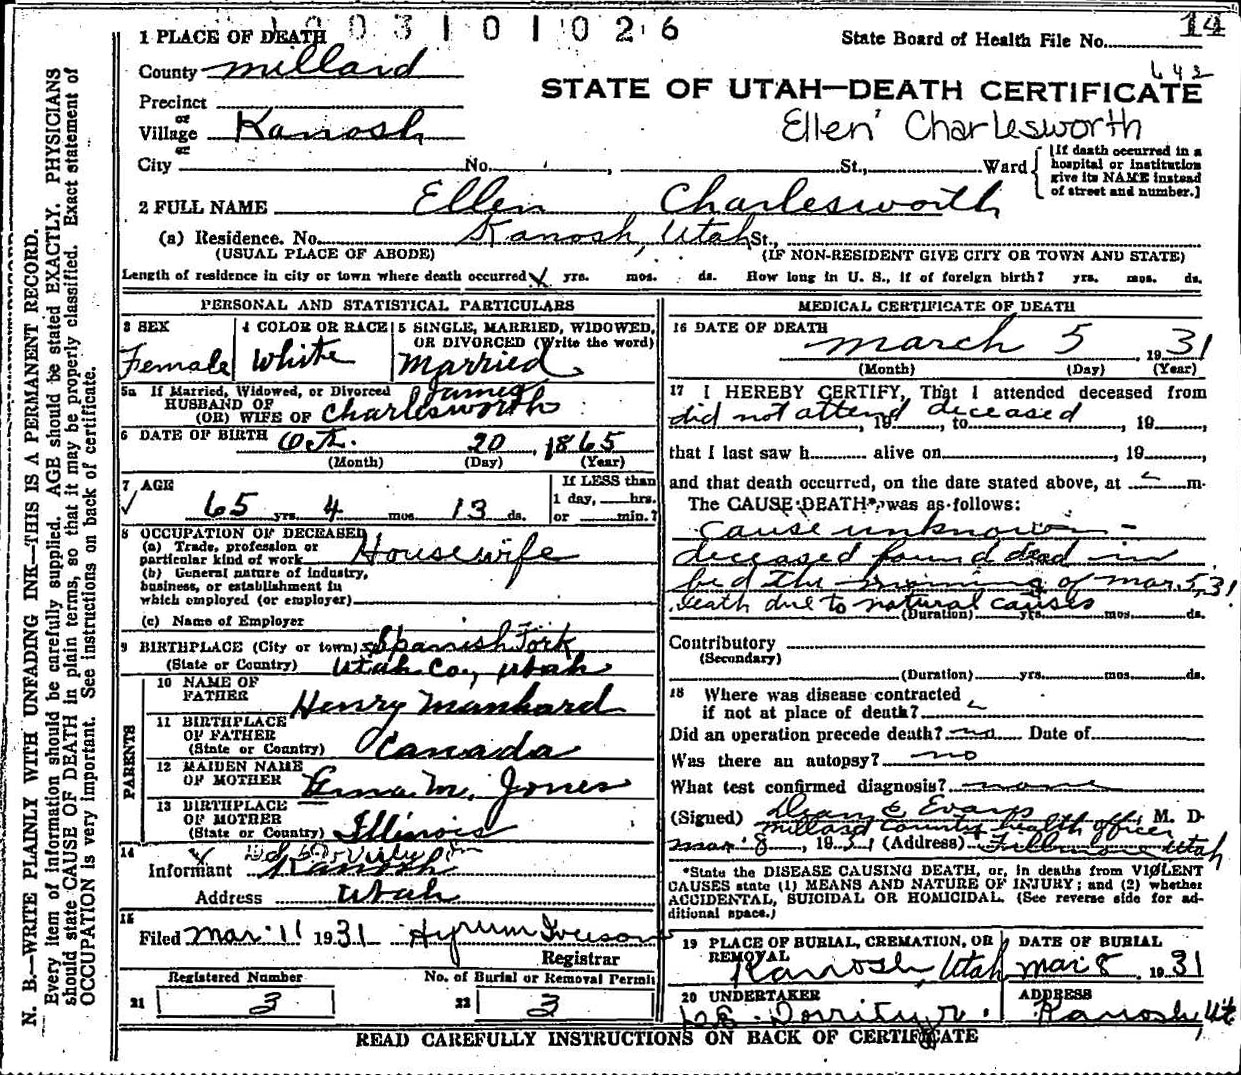 1 0 0 3 1 0 1 0 2 6
14
1 PLACE OF DEATH
State Board of Health File No.
County Millard
642
STATE OF UTAH—DEATH CERTIFICATE
Precinct
or
Village Kanosh
Ellen Charlesworth
or
City No. , St., Ward
[If death occurred in a
hospital or institution
give its NAME instead
of street and number.]
2 FULL NAME Ellen Charlesworth
(a) Residence. No. Kanosh, Utah St.,
(USUAL PLACE OF ABODE) (IF NON-RESIDENT GIVE CITY OR TOWN AND STATE)
Length of residence in city or town where death occurred yrs. mos. ds. How long in U. S., if of foreign birth? yrs. mos. ds.
PERSONAL AND STATISTICAL PARTICULARS
3 SEX 4 COLOR OR RACE 5 SINGLE, MARRIED, WIDOWED,
OR DIVORCED (Write the word)
Female White Married
5a If Married, Widowed, or Divorced
HUSBAND OF James
(OR) WIFE OF Charlesworth
6 DATE OF BIRTH Oct. 20, 1865
(Month) (Day) (Year)
7 AGE
If LESS than
1 day, hrs.
or min.?
65 yrs. 4 mos 13 ds.
8 OCCUPATION OF DECEASED
(a) Trade, profession or
particular kind of work Housewife
(b) General nature of industry,
business, or establishment in
which employed (or employer)
(c) Name of Employer
9 BIRTHPLACE (City or town) Spanish Fork
(State or Country) Utah Co, Utah
PARENTS
10 NAME OF
FATHER Henry Manhard
11 BIRTHPLACE
OF FATHER
(State or Country) Canada
12 MAIDEN NAME
OF MOTHER M. Jones
13 BIRTHPLACE
OF MOTHER
(State or Country) Illinois
14
Informant
Kanosh
Address Utah
15
Filed Mar. 11 1931 Hyrum Iverson
Registrar
Registered Number No. of Burial or Removal Permit
21 3 22 3
MEDICAL CERTIFICATE OF DEATH
16 DATE OF DEATH
March 5, 1931
(Month) (Day) (Year)
17 I HEREBY CERTIFY, That I attended deceased from
did not attend deceased, 19 , to , 19 ,
that I last saw h alive on , 19 ,
and that death occurred, on the date stated above, at m.
The CAUSE DEATH* was as follows:
Cause unknown -
deceased found dead in
bed the morning of Mar. 5, 31
Death due to natural causes
(Duration) yrs. mos. ds.
Contributory
(Secondary)
(Duration) yrs. mos. ds.
18 Where was disease contracted
if not at place of death?
Did an operation precede death? no Date of
Was there an autopsy? no
What test confirmed diagnosis? none
(Signed) Dean C Evans, M. D.
Millard County health officer
Mar. 8, 1931 (Address) Fillmore Utah
*State the DISEASE CAUSING DEATH, or, in deaths from VIOLENT
CAUSES state (1) MEANS AND NATURE OF INJURY; and (2) whether
ACCIDENTAL, SUICIDAL OR HOMICIDAL. (See reverse side for ad-
ditional space.)
19 PLACE OF BURIAL, CREMATION, OR
REMOVAL
DATE OF BURIAL
Kanosh, Utah Mar 8 1931
20 UNDERTAKER ADDRESS
Dorrity Jr. Kanosh, Ut.
READ CAREFULLY INSTRUCTIONS ON BACK OF CERTIFICATE
N. B.—WRITE PLAINLY WITH UNFADING INK—THIS IS A PERMANENT RECORD.
Every item of information should be carefully supplied. AGE should be stated EXACTLY. PHYSICIANS
should state CAUSE OF DEATH in plain terms, so that it may be properly classified. Exact statement of
OCCUPATION is very important. See instructions on back of certificate.